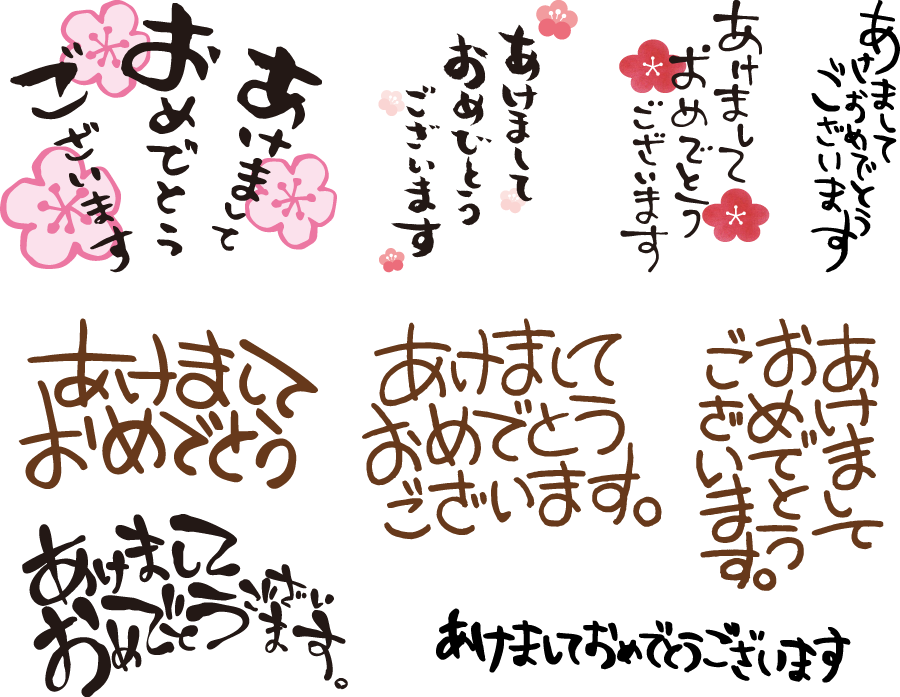 あけまして
おめでとう
ございます
あけまして
おめでとう
ございます
あけまして
おめでとう
ございます
あけまして
おめでとう
ございます
あけまして
おめでとう
あけまして
おめでとう
ございます。
あけまして
おめでとう
ございます。
あけまして
おめでとう
ございます。
あけましておめでとうございます